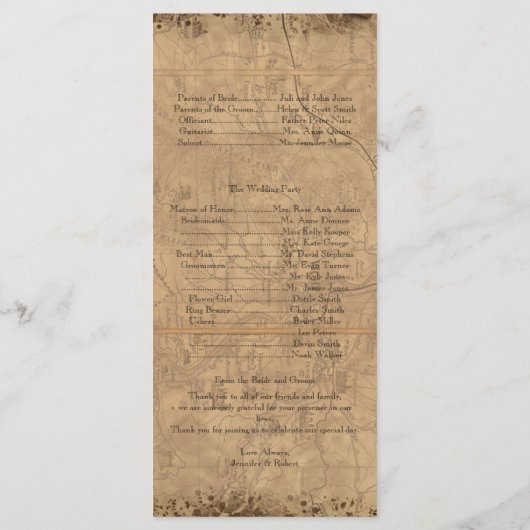 Parents of Bride................ Juli and John Jones
Parents of the Groom...........Helen & Scott Smith
Officiant............................Father Peter Niles
Guitarist............................Mrs. Anne Quinn
Soloist..............................Ms. Jennifer Moore
The Wedding Party
Matron of Honor...............Mrs. Rose Ann Adams
Bridesmaids.......................Ms. Anne Danner
.......................................Miss Kelly Kooper
.......................................Ms. Kate George
Best Man.........................Mr. David Stephens
Groomsmen.....................Mr. Evan Turner
.......................................Mr. Kyle Jones
.......................................Mr. James Jones
Flower Girl.......................Dottie Smith
Ring Bearer.....................Charles Smith
Ushers.............................Bruce Miller
.......................................Ian Peters
.......................................Devin Smith
.......................................Noah Walker
From the Bride and Groom
Thank you to all of our friends and family,
we are sincerely grateful for your presence in our
lives.
Thank you for joining us to celebrate our special day.
Love Always,
Jennifer & Robert